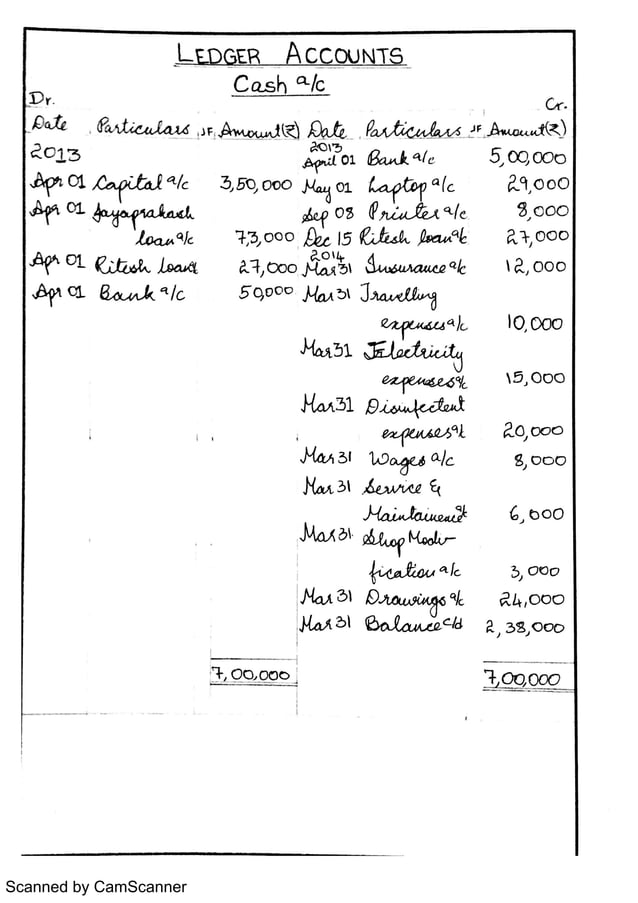 LEDGER ACCOUNTS
Cash a/c
Dr. Cr.
Date Particulars JF Amount(₹) Date Particulars JF Amount(₹)
2013 2013
April 01 Bank a/c 5,00,000
Apr 01 Capital a/c 3,50,000 May 01 Laptop a/c 29,000
Apr 01 Jayaprakash Sep 08 Printer a/c 8,000
loan a/c 73,000 Dec 15 Ritesh loan a/c 27,000
2014
Apr 01 Ritesh Loan 27,000 Mar 31 Insurance a/c 12,000
Apr 01 Bank a/c 50,000 Mar 31 Travelling
expenses a/c 10,000
Mar 31 Electricity
expenses a/c 15,000
Mar 31 Disinfectent
expenses a/c 20,000
Mar 31 Wages a/c 8,000
Mar 31 Service &
Maintainence a/c 6,000
Mar 31 Shop Modi-
fication a/c 3,000
Mar 31 Drawings a/c 24,000
Mar 31 Balance c/d 2,38,000
7,00,000 7,00,000
Scanned by CamScanner